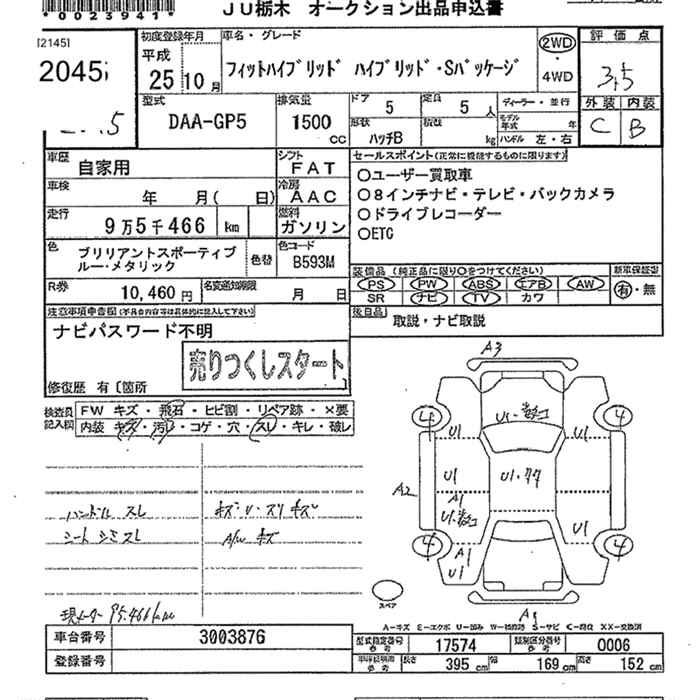 *0023941*
JU栃木 オークション出品申込書
[2145]
2045
初度登録年月
平成
25 10月
車名・グレード
フィットハイブリッド ハイブリッド・Sパッケージ
2WD
・
4WD
評価点
3,5
外装 内装
C B
型式
DAA-GP5
排気量
1500
cc
ドア 5
定員 5 人
形状 ハッチB
積載 kg
ディーラー・並行
モデル年式 年
ハンドル 左・右
車歴
自家用
シフト
FAT
車検
年 月( 日)
冷房
AAC
走行
9万5千466 km
燃料
ガソリン
色
ブリリアントスポーティブ
ルー・メタリック
色替
色コード
B593M
R券
10,460 円
名変通知期限
月 日
セールスポイント(正常に機能するものに限ります)
○ユーザー買取車
○8インチナビ・テレビ・バックカメラ
○ドライブレコーダー
○ETC
装備品(純正品に限り○をつけてください)
PS PW ABS エアB AW
SR ナビ TV カワ
新車保証書
有・無
後日品
取説・ナビ取説
注意事項申告欄(不具合内容等は具体的に記入して下さい)
ナビパスワード不明
売りつくしスタート
修復歴 有 [箇所
検査員
記入欄
FW キズ・飛石・ヒビ割・リペア跡・×要
内装 キズ・汚レ・コゲ・穴・スレ・キレ・破レ
ハンドル スレ
シート シミ スレ
キズ・U・スリキズ
A/W キズ
現メーター 95.466km
A3
4
4
U1
U1
U1
U1・77
A2
A1
U1
4
4
A1
U1
スペア
A-キズ E-エクボ U-凹み W-補修跡 S-サビ C-腐蝕 XX-交換済
車台番号
3003876
登録番号
型式指定番号
17574
類別区分番号
0006
長さ 395 cm
幅 169 cm
高さ 152 cm